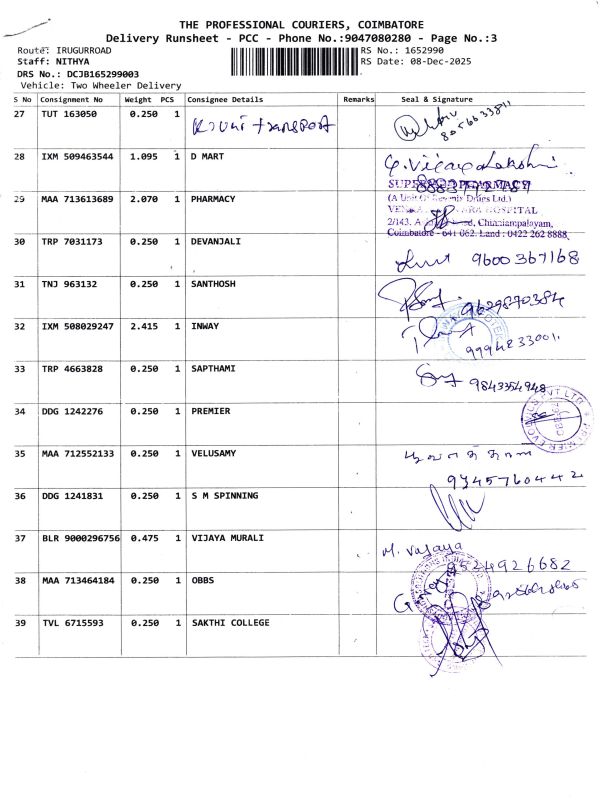 THE PROFESSIONAL COURIERS, COIMBATORE
Delivery Runsheet - PCC - Phone No.:9047080280 - Page No.:3
Route: IRUGURROAD RS No.: 1652990
Staff: NITHYA RS Date: 08-Dec-2025
DRS No.: DCJB165299003
Vehicle: Two Wheeler Delivery
S No Consignment No Weight PCS Consignee Details Remarks Seal & Signature
27 TUT 163050 0.250 1 transport 8056633811
28 IXM 509463544 1.095 1 D MART G. Vijayalakshmi
SUPER PHARMACY
29 MAA 713613689 2.070 1 PHARMACY (A Unit Of Drugs Ltd.)
HOSPITAL
2/143, Chinniampalayam,
Coimbatore - 641 062. Land : 0422 262 8888
30 TRP 7031173 0.250 1 DEVANJALI 9600367168
31 TNJ 963132 0.250 1 SANTHOSH 9629890384
32 IXM 508029247 2.415 1 INWAY 9994833001
33 TRP 4663828 0.250 1 SAPTHAMI 9843354948
34 DDG 1242276 0.250 1 PREMIER
35 MAA 712552133 0.250 1 VELUSAMY 9345760442
36 DDG 1241831 0.250 1 S M SPINNING
37 BLR 9000296756 0.475 1 VIJAYA MURALI M. Vajaya
9524926682
38 MAA 713464184 0.250 1 OBBS
39 TVL 6715593 0.250 1 SAKTHI COLLEGE